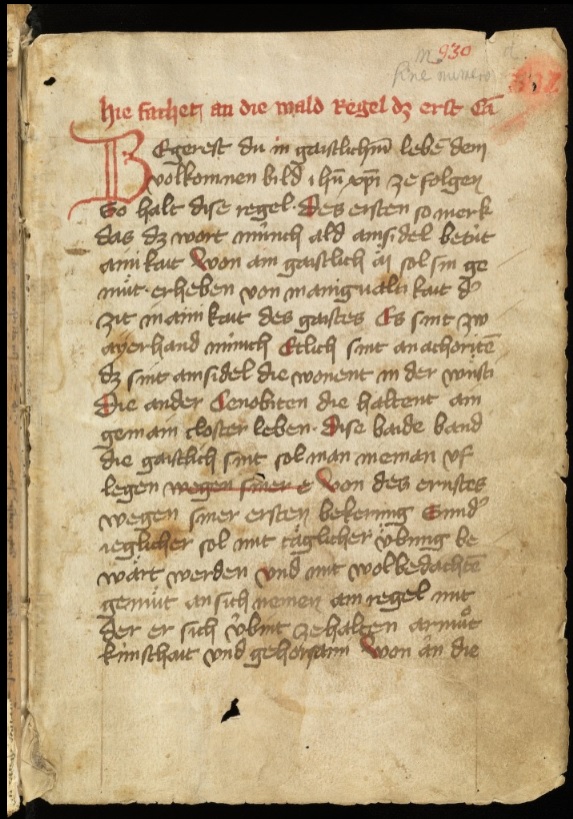 930
sine numero
hie fachet an die wald Regel dz erst Ca
BEgerest du in gaistlichem lebē dem
volkomnen bild ihū xpi ze folgen
So halt dise regel. Des ersten so merk
das dz wort münch ald ainsidel betüt
ainikait Won ain gaistlich sol sin ge
müt erheben von manigualtikait dˢ
zit in ainikait des gaistes Es sint zw
ayerhand münich Etlich sint anachoritē
dz sint ainsidel die wonent in der wüsti
Die ander Cenobiten die haltent ain
gemain closter leben. Dise baide band
die gaistlich sint sol man nieman vf
legen wegen siner e Won des ernstes
wegen siner ersten bekerung Sundˢ
ieglicher sol mit täglicher übung be
wärt werden vnd mit wolbedachtē
gemüt an sich nemen ain regel mit
der er sich übint ze halten armůt
künschait vnd gehorsami Won ân die